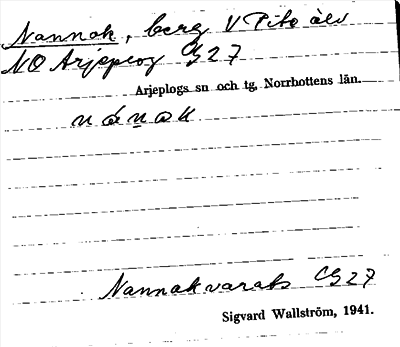 Nannak, berg V Pite älv
NO Arjeplog C927
Arjeplogs sn och tg, Norrbottens län.
nának
Nannakvarats C927
Sigvard Wallström, 1941.